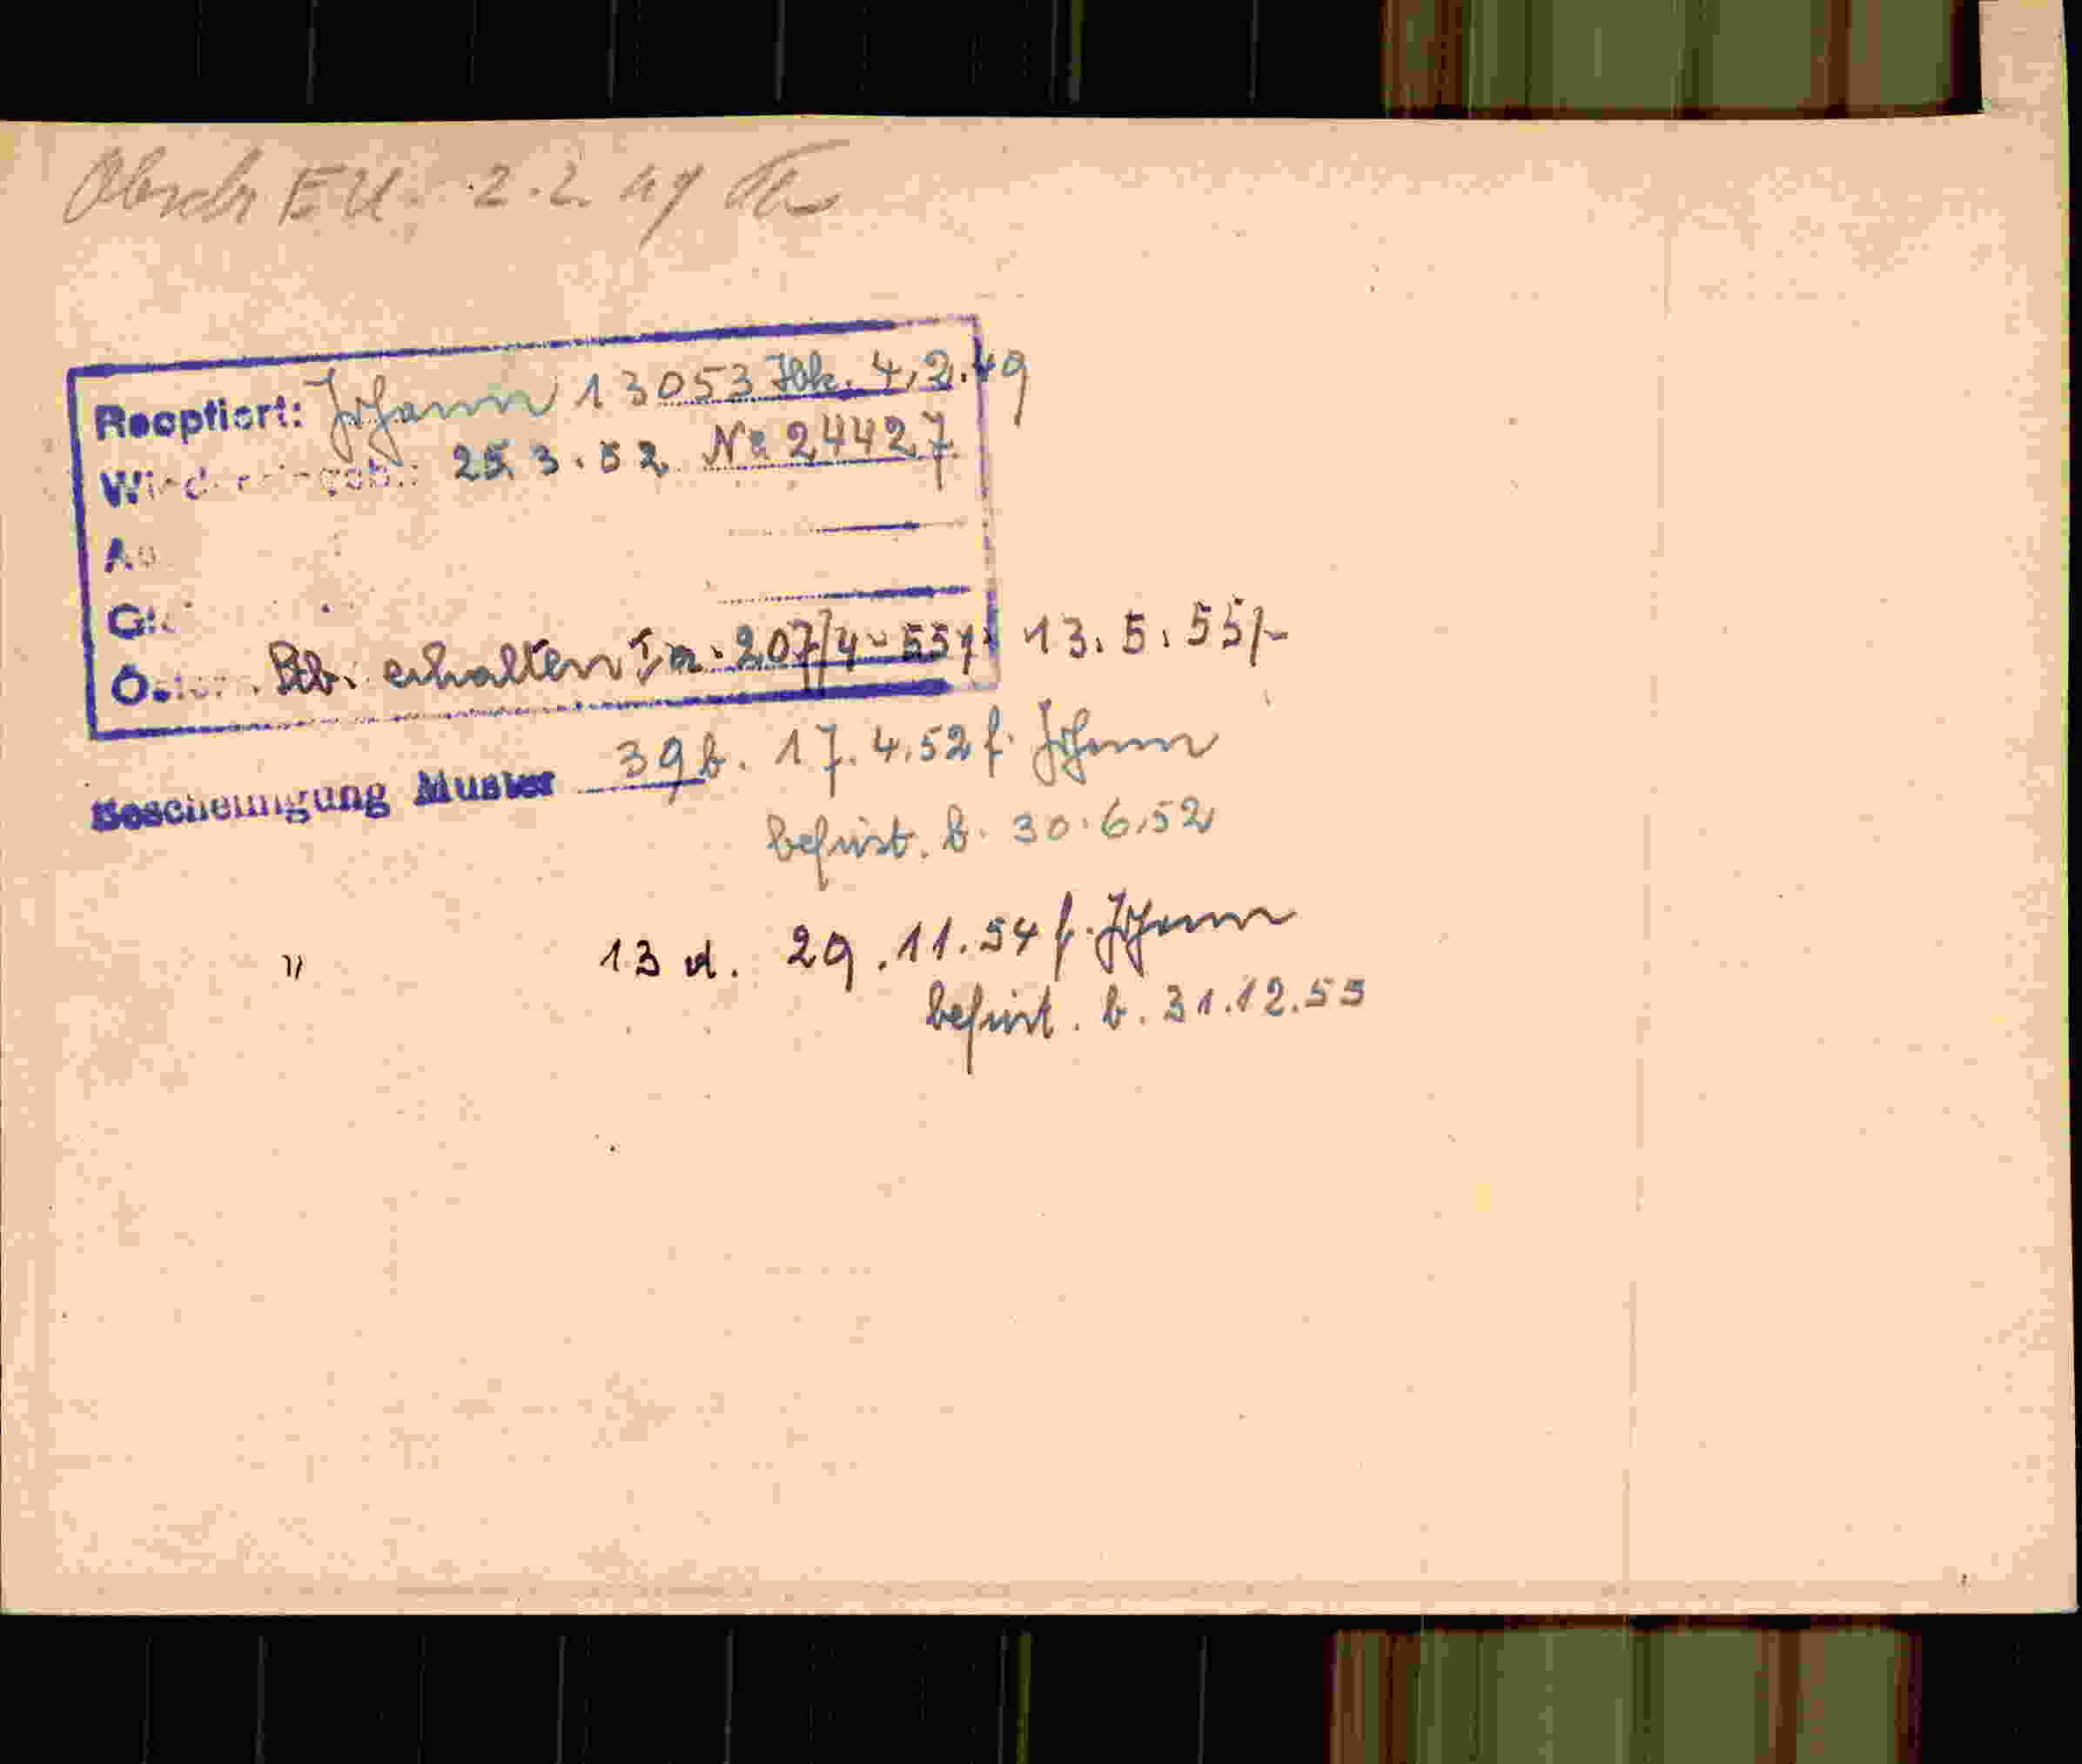 EU. 2.2.49
Reoptiert: Johann 13053 4.2.49
25.3.52 No 24427
Stb. erhalten 207/4-55 13.5.55
Bescheinigung Muster 39b. 17.4.52 f. Johann
befrist. b. 30.6.52
" 13 d. 29.11.54 f. Johann
befrist. b. 31.12.55